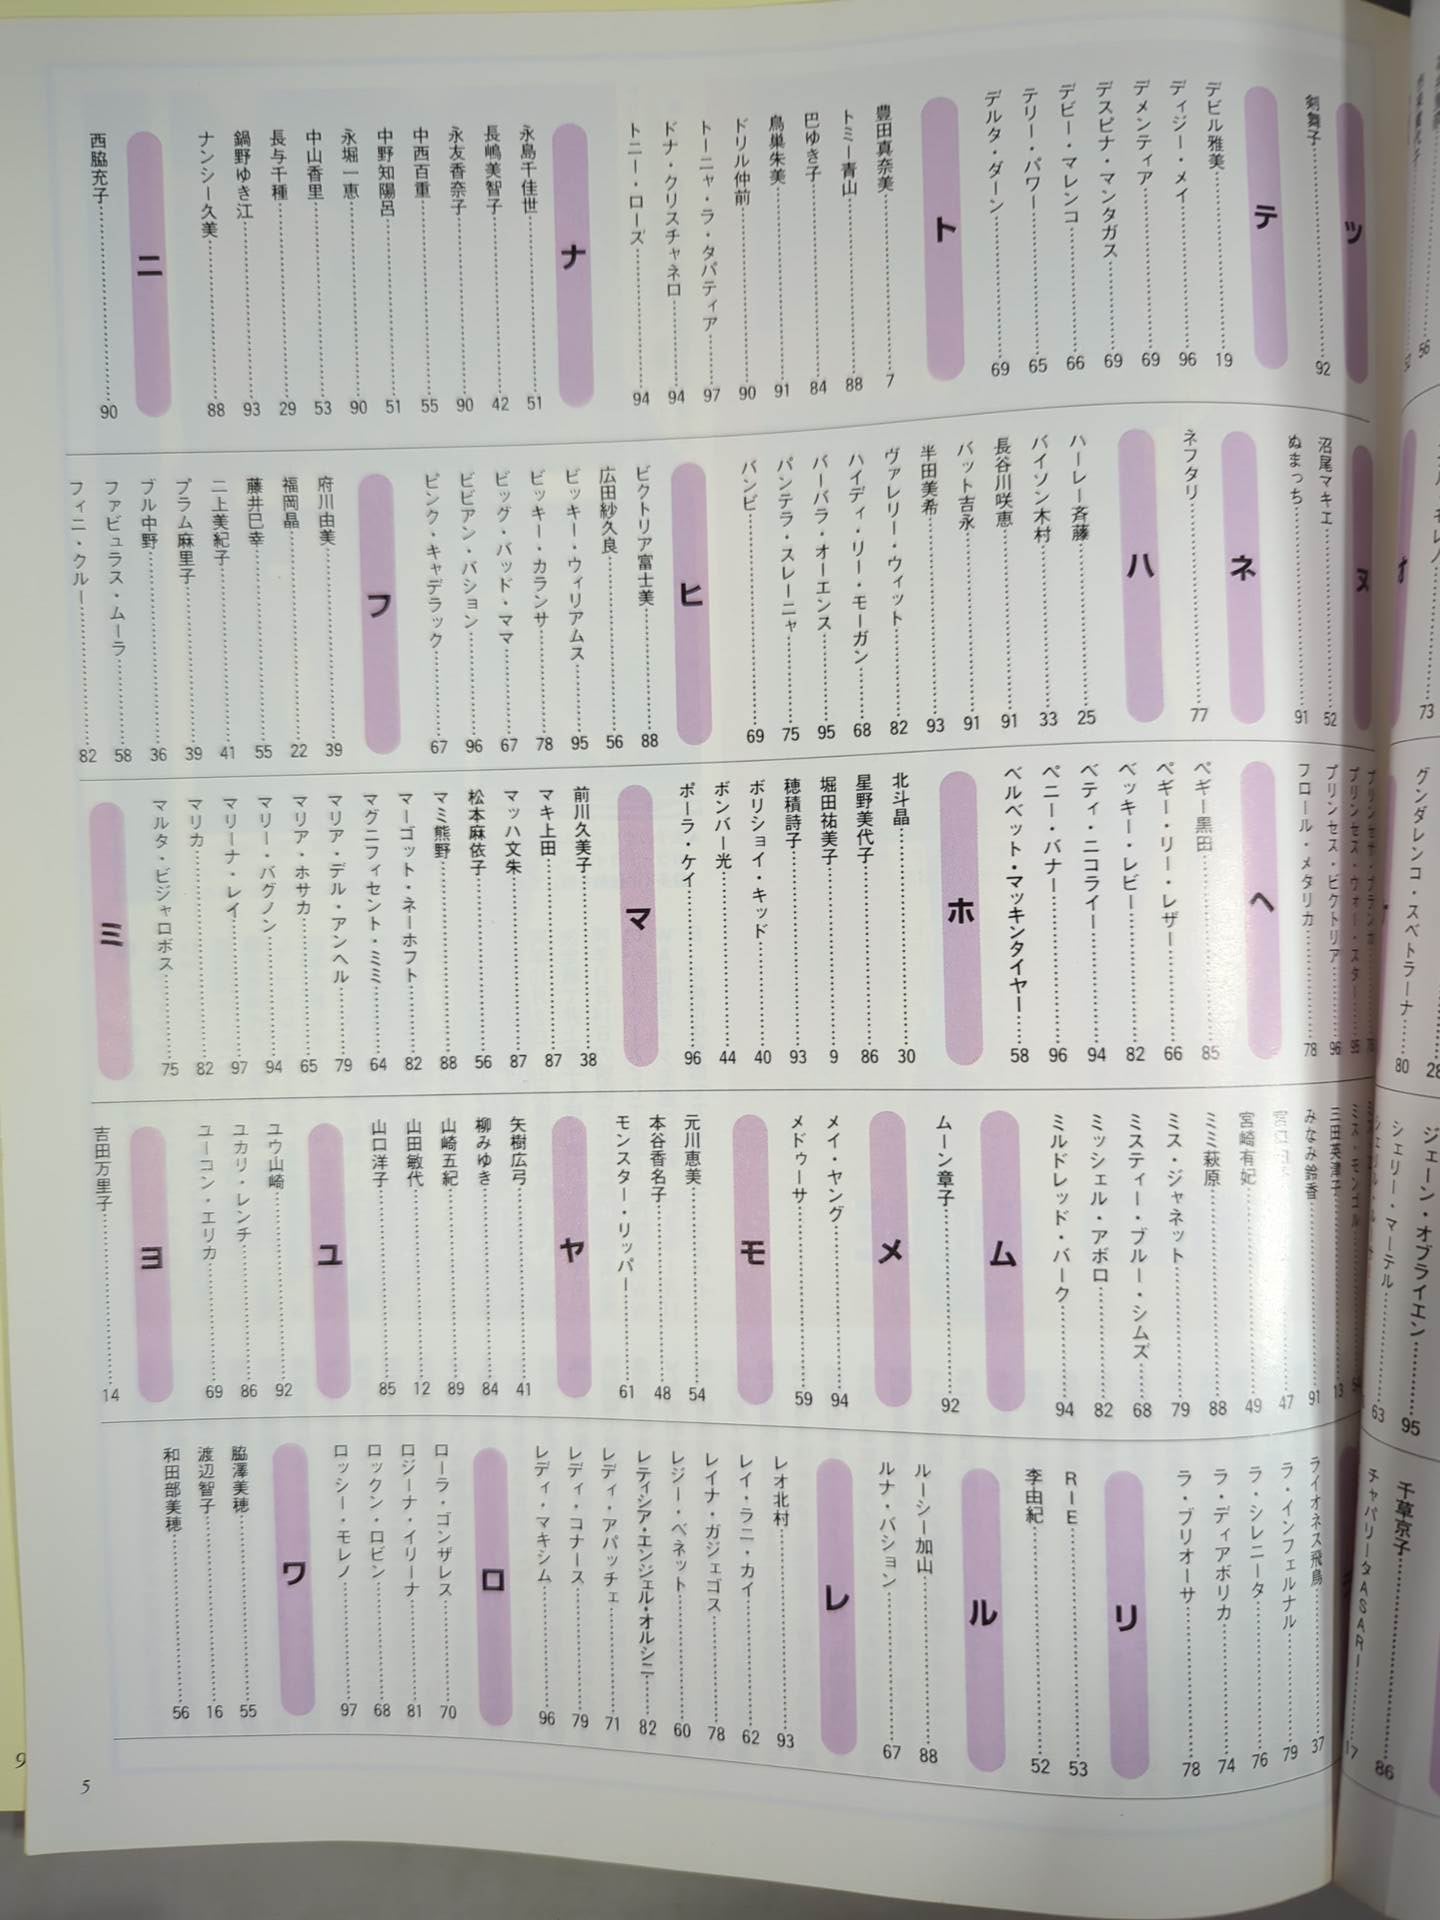 ツ
剣舞子……92
テ
デビル雅美……19
ディジー・メイ……96
デメンティア……69
デスピナ・マンタガス……69
デビー・マレンコ……66
テリー・パワー……65
デルタ・ダーン……69
ト
豊田真奈美……7
トミー青山……88
巴ゆき子……84
鳥巣朱美……91
ドリル仲前……90
トーニャ・ラ・タパティア……97
ドナ・クリスチャネロ……94
トニー・ローズ……94
ナ
永島千佳世……51
長嶋美智子……42
永友香奈子……90
中西百重……55
中野知陽呂……51
永堀一恵……90
中山香里……53
長与千種……29
鍋野ゆき江……93
ナンシー久美……88
ニ
西脇充子……90
ヌ
沼尾マキエ……52
ぬまっち……91
ネ
ネフタリ……77
ハ
ハーレー斉藤……25
バイソン木村……33
長谷川咲恵……91
バット吉永……91
半田美希……93
ヴァレリー・ウィット……82
ハイディ・リー・モーガン……68
バーバラ・オーエンス……95
パンテラ・スレーニャ……75
バンビ……69
ヒ
ビクトリア富士美……88
広田紗久良……56
ビッキー・ウィリアムス……95
ビッキー・カランサ……78
ビッグ・バッド・ママ……67
ビビアン・バション……96
ピンク・キャデラック……67
フ
府川由美……39
福岡晶……22
藤井巳幸……55
二上美紀子……41
プラム麻里子……39
ブル中野……36
ファビュラス・ムーラ……58
フィニ・クルー……82
プリンセサ・ブランコ……
プリンセス・ウォー・スター……95
プリンセス・ビクトリア……96
フロール・メタリカ……78
ヘ
ペギー黒田……85
ペギー・リー・レザー……66
ベッキー・レビー……82
ベティ・ニコライ……94
ペニー・バナー……96
ベルベット・マッキンタイヤー……58
ホ
北斗晶……30
星野美代子……86
堀田祐美子……9
穂積詩子……93
ボリショイ・キッド……40
ボンバー光……44
ポーラ・ケイ……96
マ
前川久美子……38
マキ上田……87
マッハ文朱……87
松本麻依子……56
マミ熊野……88
マーゴット・ネーホフト……82
マグニフィセント・ミミ……64
マリア・デル・アンヘル……79
マリア・ホサカ……65
マリー・バグノン……94
マリーナ・レイ……97
マリカ……82
マルタ・ビジャロボス……75
ミ
三田英津子……13
みなみ鈴香……91
宮崎有妃……49
ミミ萩原……88
ミス・ジャネット……79
ミスティー・ブルー・シムズ……68
ミッシェル・アポロ……82
ミルドレッド・バーク……94
ム
ムーン章子……92
メ
メイ・ヤング……94
メドゥーサ……59
モ
元川恵美……54
本谷香名子……48
モンスター・リッパー……61
ヤ
矢樹広弓……41
柳みゆき……84
山崎五紀……89
山田敏代……12
山口洋子……85
ユ
ユウ山崎……92
ユカリ・レンチ……86
ユーコン・エリカ……69
ヨ
吉田万里子……14
ライオネス飛鳥……37
ラ・インフェルナル……79
ラ・シレニータ……76
ラ・ディアボリカ……74
ラ・ブリオーサ……78
リ
RIE……53
李由紀……52
ル
ルーシー加山……88
ルナ・バション……67
レ
レオ北村……93
レイ・ラニ・カイ……62
レイナ・ガジェゴス……78
レジー・ベネット……60
レティシア・エンジェル・オルシニ……82
レディ・アパッチェ……71
レディ・コナース……79
レディ・マキシム……96
ロ
ローラ・ゴンザレス……70
ロジーナ・イリーナ……81
ロックン・ロビン……68
ロッシー・モレノ……97
ワ
脇澤美穂……55
渡辺智子……16
和田部美穂……56
5
グンダレンコ・スベトラーナ……80
ジェーン・オブライエン……95
シェリー・マーテル……63
千草京子……86
チャパリータASARI……17
9